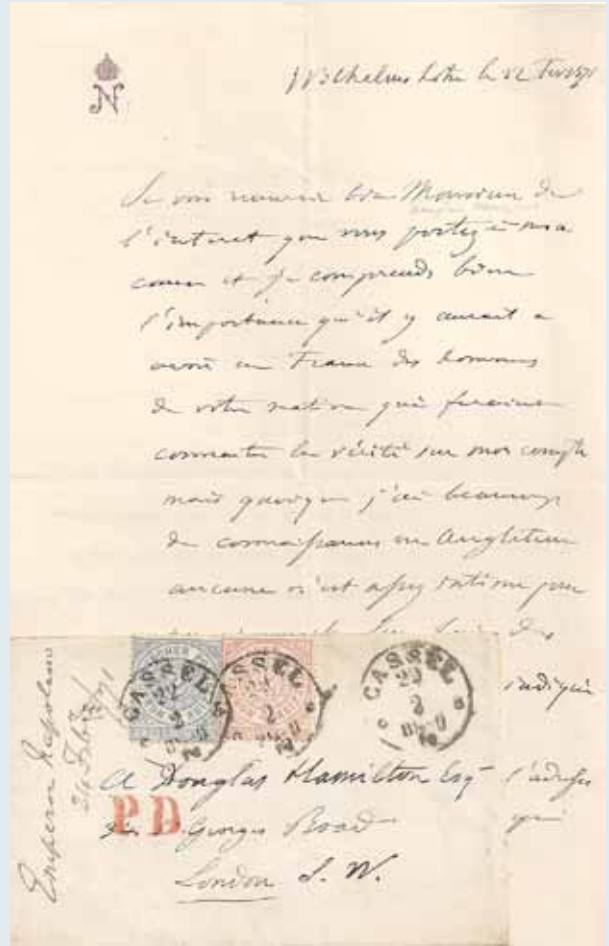 N
Wilhelmshöhe le 22 Fev 1871
Je vous remercie bien Monsieur de
l'interet que vous portez à ma
cause et je comprends bien
l'importance qu'il y aurait a
avoir en France des hommes
de votre nation qui feraient
connaitre la vérité sur mon compte
mais quoique j'ai beaucoup
de connaissances en Angleterre
aucune n'est assez intime pour
indiquer
l'adresse
qui
CASSEL
22
2
CASSEL
22
2
CASSEL
22
2
A Douglas Hamilton Esqr
P.D.
Georges Road
London S. W.
Emperor Napoleon
24 Feby /71